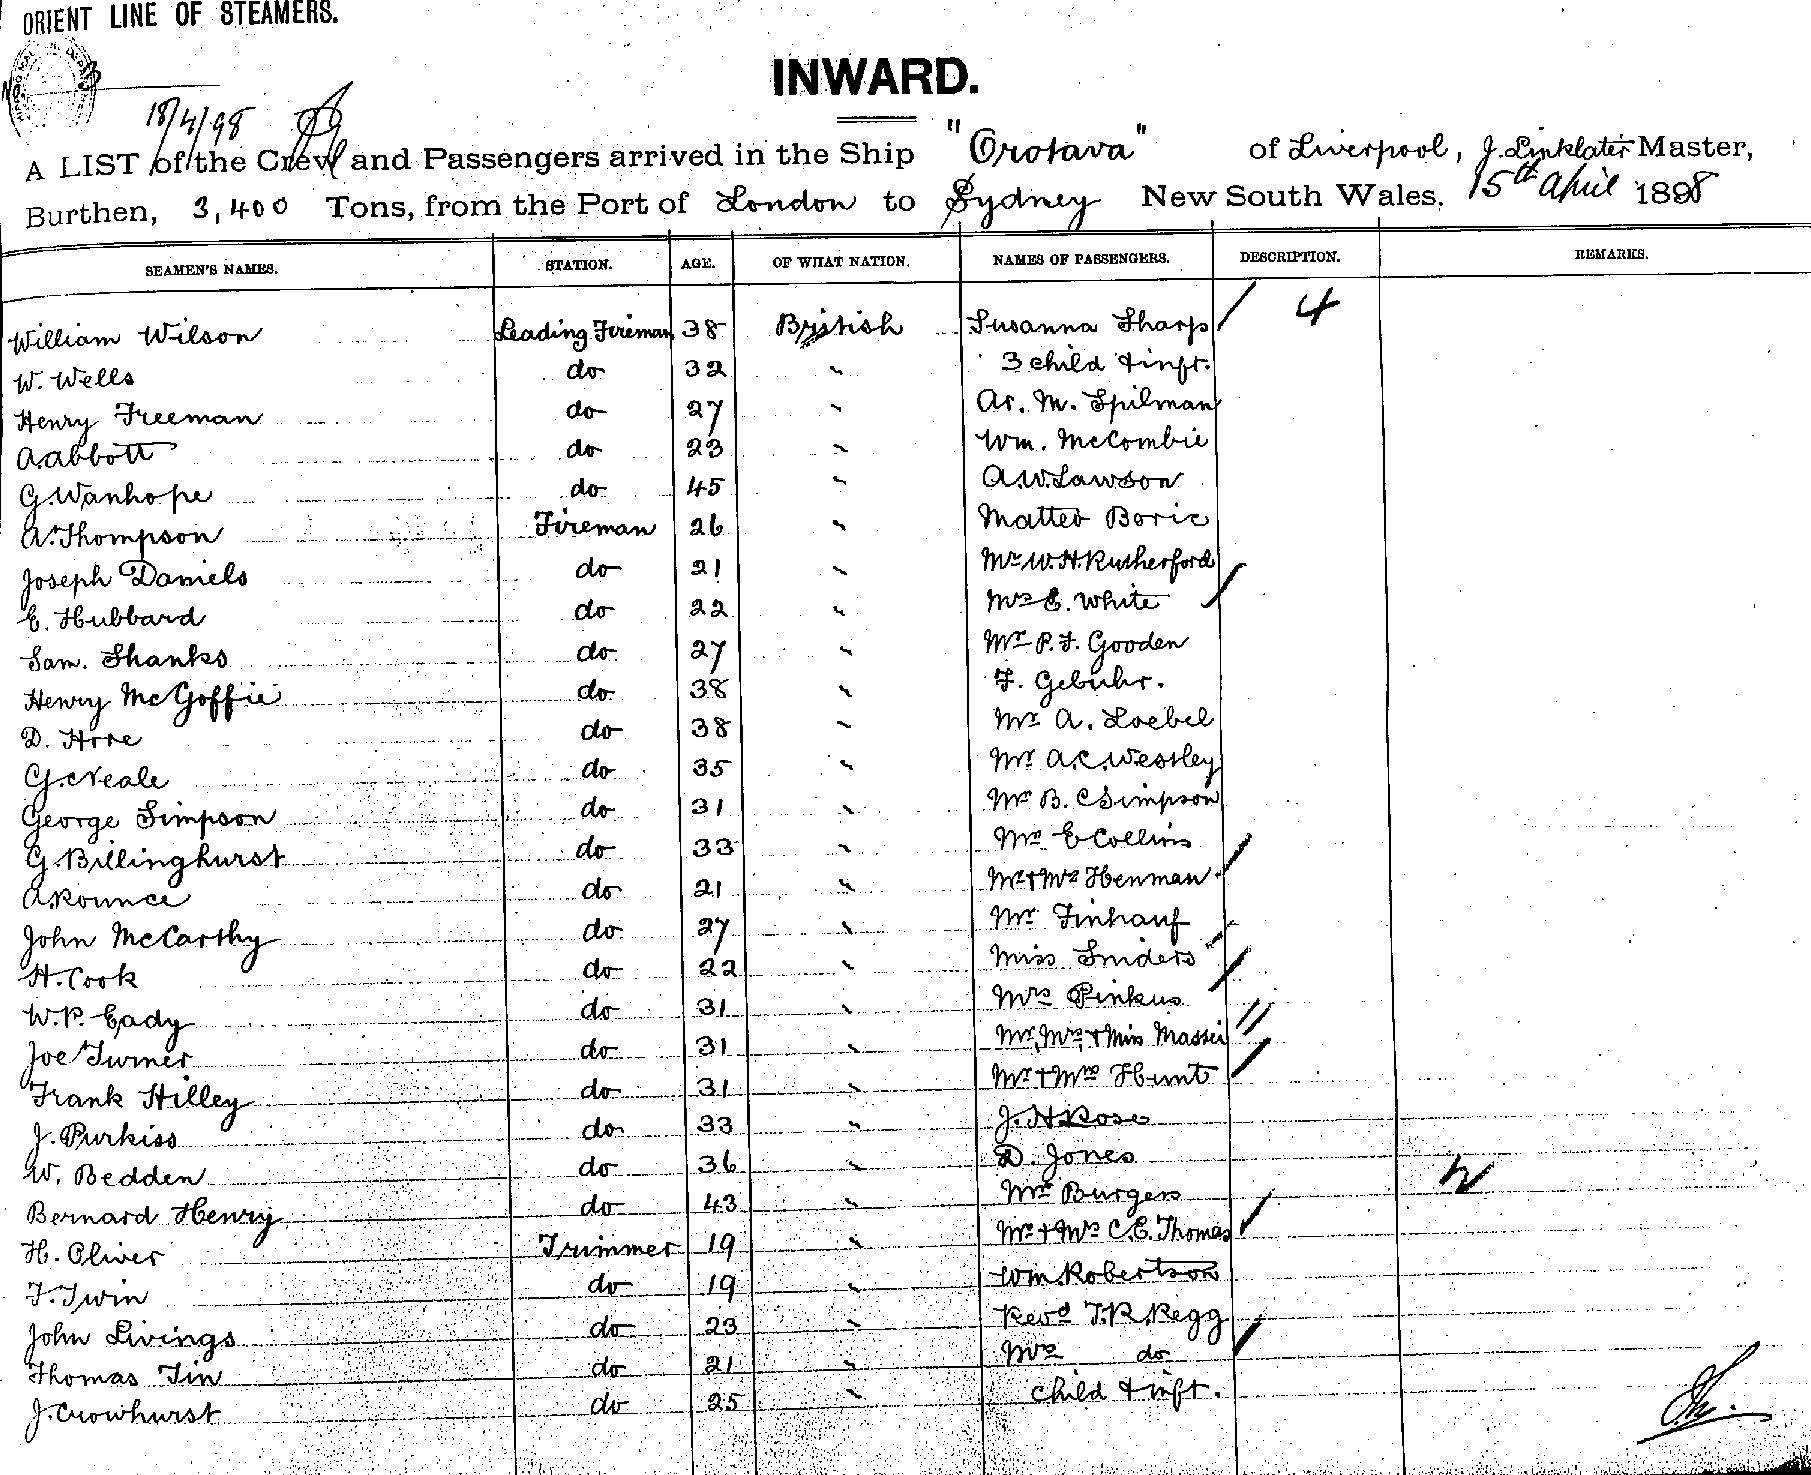 ORIENT LINE OF STEAMERS.
INWARD.
18/4/98
A LIST of the Crew and Passengers arrived in the Ship "Orotava" of Liverpool, J. Linklater Master,
Burthen, 3,400 Tons, from the Port of London to Sydney New South Wales, 15th April 1898
SEAMEN'S NAMES. STATION. AGE. OF WHAT NATION. NAMES OF PASSENGERS. DESCRIPTION. REMARKS.
William Wilson Leading Fireman 38 British Susanna Sharp 4
W. Wells do 32 " 3 child + inft.
Henry Freeman do 27 " Ar. M. Spilman
A. Abbott do 23 " Wm. McCombie
G. Wanhope do 45 " A.W. Lawson
A. Thompson Fireman 26 " Matteo Boric
Joseph Daniels do 21 " Mr W. H. Rutherford
E. Hubbard do 22 " Mrs E. White
Sam. Shanks do 27 " Mr P. F. Gooden
Henry McGoffie do 38 " F. Gebuhr.
D. Hore do 38 " Mr A. Loebel
G. Neale do 35 " Mr A.C. Westley
George Simpson do 31 " Mr B. C Simpson
G. Billinghurst do 33 " Mr E Collins
A. Rounce do 21 " Mr + Mrs Henman
John McCarthy do 27 " Mr Finhauf
H. Cook do 22 " Miss Sniders
W.P. Eady do 31 " Mrs Pinkus
Joe Turner do 31 " Mr, Mrs, + Miss Massei
Frank Hilley do 31 " Mr + Mrs Hunt
J. Purkiss do 33 " J. H Rose
W. Bedden do 36 " D. Jones
Bernard Henry do 43 " Mr Burgess
H. Oliver Trimmer 19 " Mr + Mrs C. E. Thomas
F. Twin do 19 " Wm Robertson
John Livings do 23 " Revd T. R. Regg
Thomas Tin do 21 " Mrs do
J. Crowhurst do 25 " child + inft.